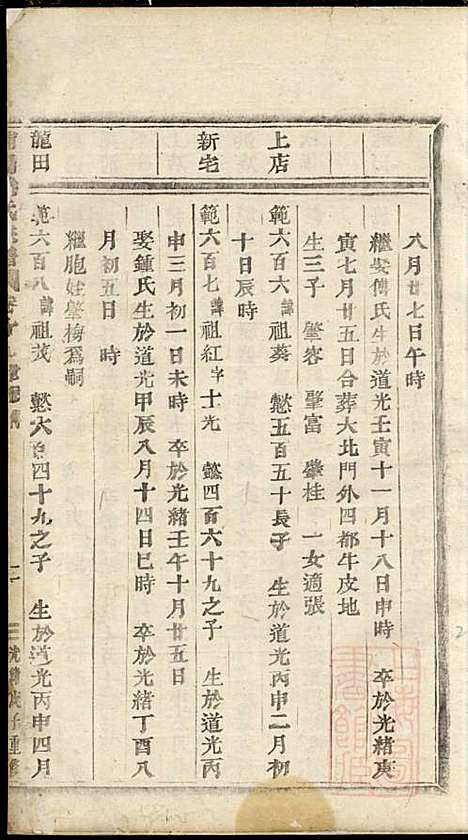 上店
新宅
龍田
八月廿七日午時
繼娶傅氏生於道光壬寅十一月十八日申時 卒於光緒庚
寅七月廿五日合葬大北門外四都牛皮地
生三子 肇容 肇富 肇桂 一女適張
範六百六諱祖葵 懿五百五十長子 生於道光丙申二月初
十日辰時
範六百七諱祖紅字士光 懿四百六十九之子 生於道光丙
申三月初一日未時 卒於光緒壬午十月廿五日
娶鍾氏生於道光甲辰八月十四日巳時 卒於光緒丁酉八
月初五日 時
繼胞姪肇梅爲嗣
範六百八諱祖茂 懿六百四十九之子 生於道光丙申四月